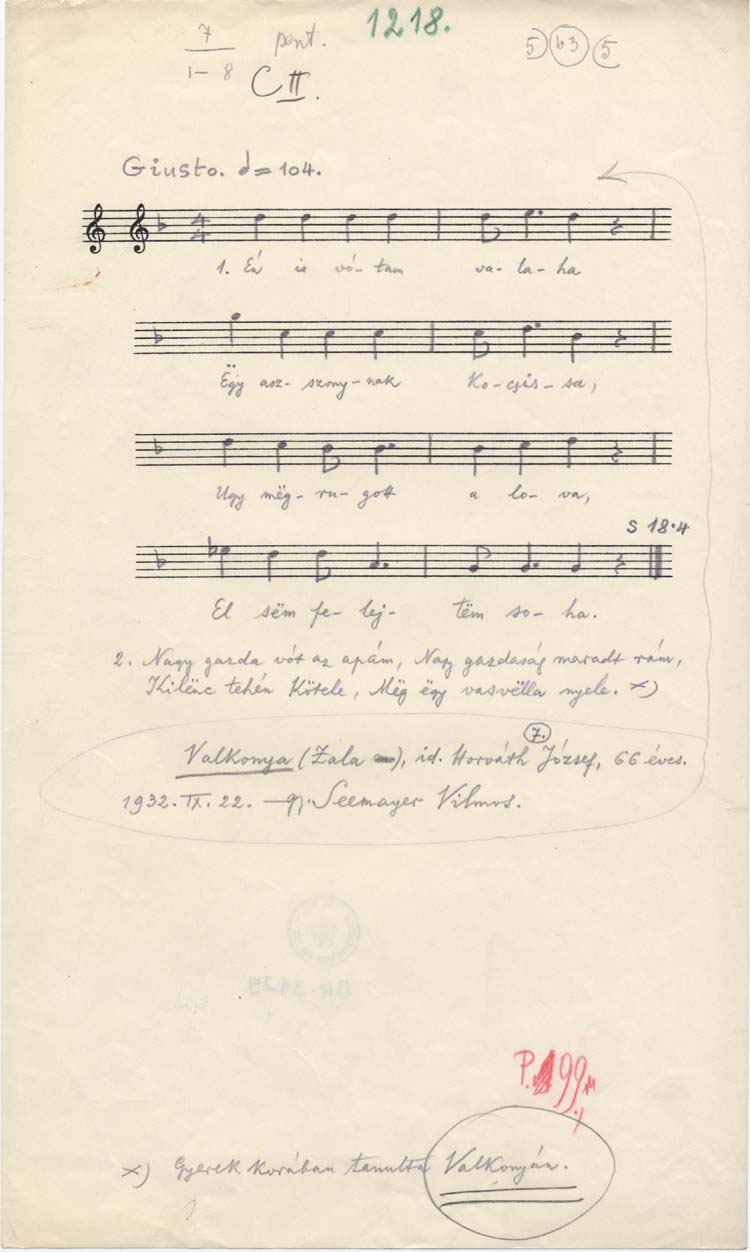 7 pent. 1218. 5 b3 5
1-8 CII.
Giusto. d = 104.
4
4
1. Én is vó-tam va-la-ha
Ëgy asz-szony-nak Ko-csis-sa,
Ugy mëg-ru-gott a lo-va,
S 18.4
El sëm fe-lej-tëm so-ha.
2. Nagy gazda vót az apám, Nagy gazdaság maradt rám,
Kilënc tehén Kötele, Mëg ëgy vasvëlla nyele. x)
7.
Valkonya (Zala), id. Horváth József, 66 éves.
1932. IX. 22. – gy. Seemayer Vilmos.
P. 199
x) Gyerek korában tanulta Valkonyán.